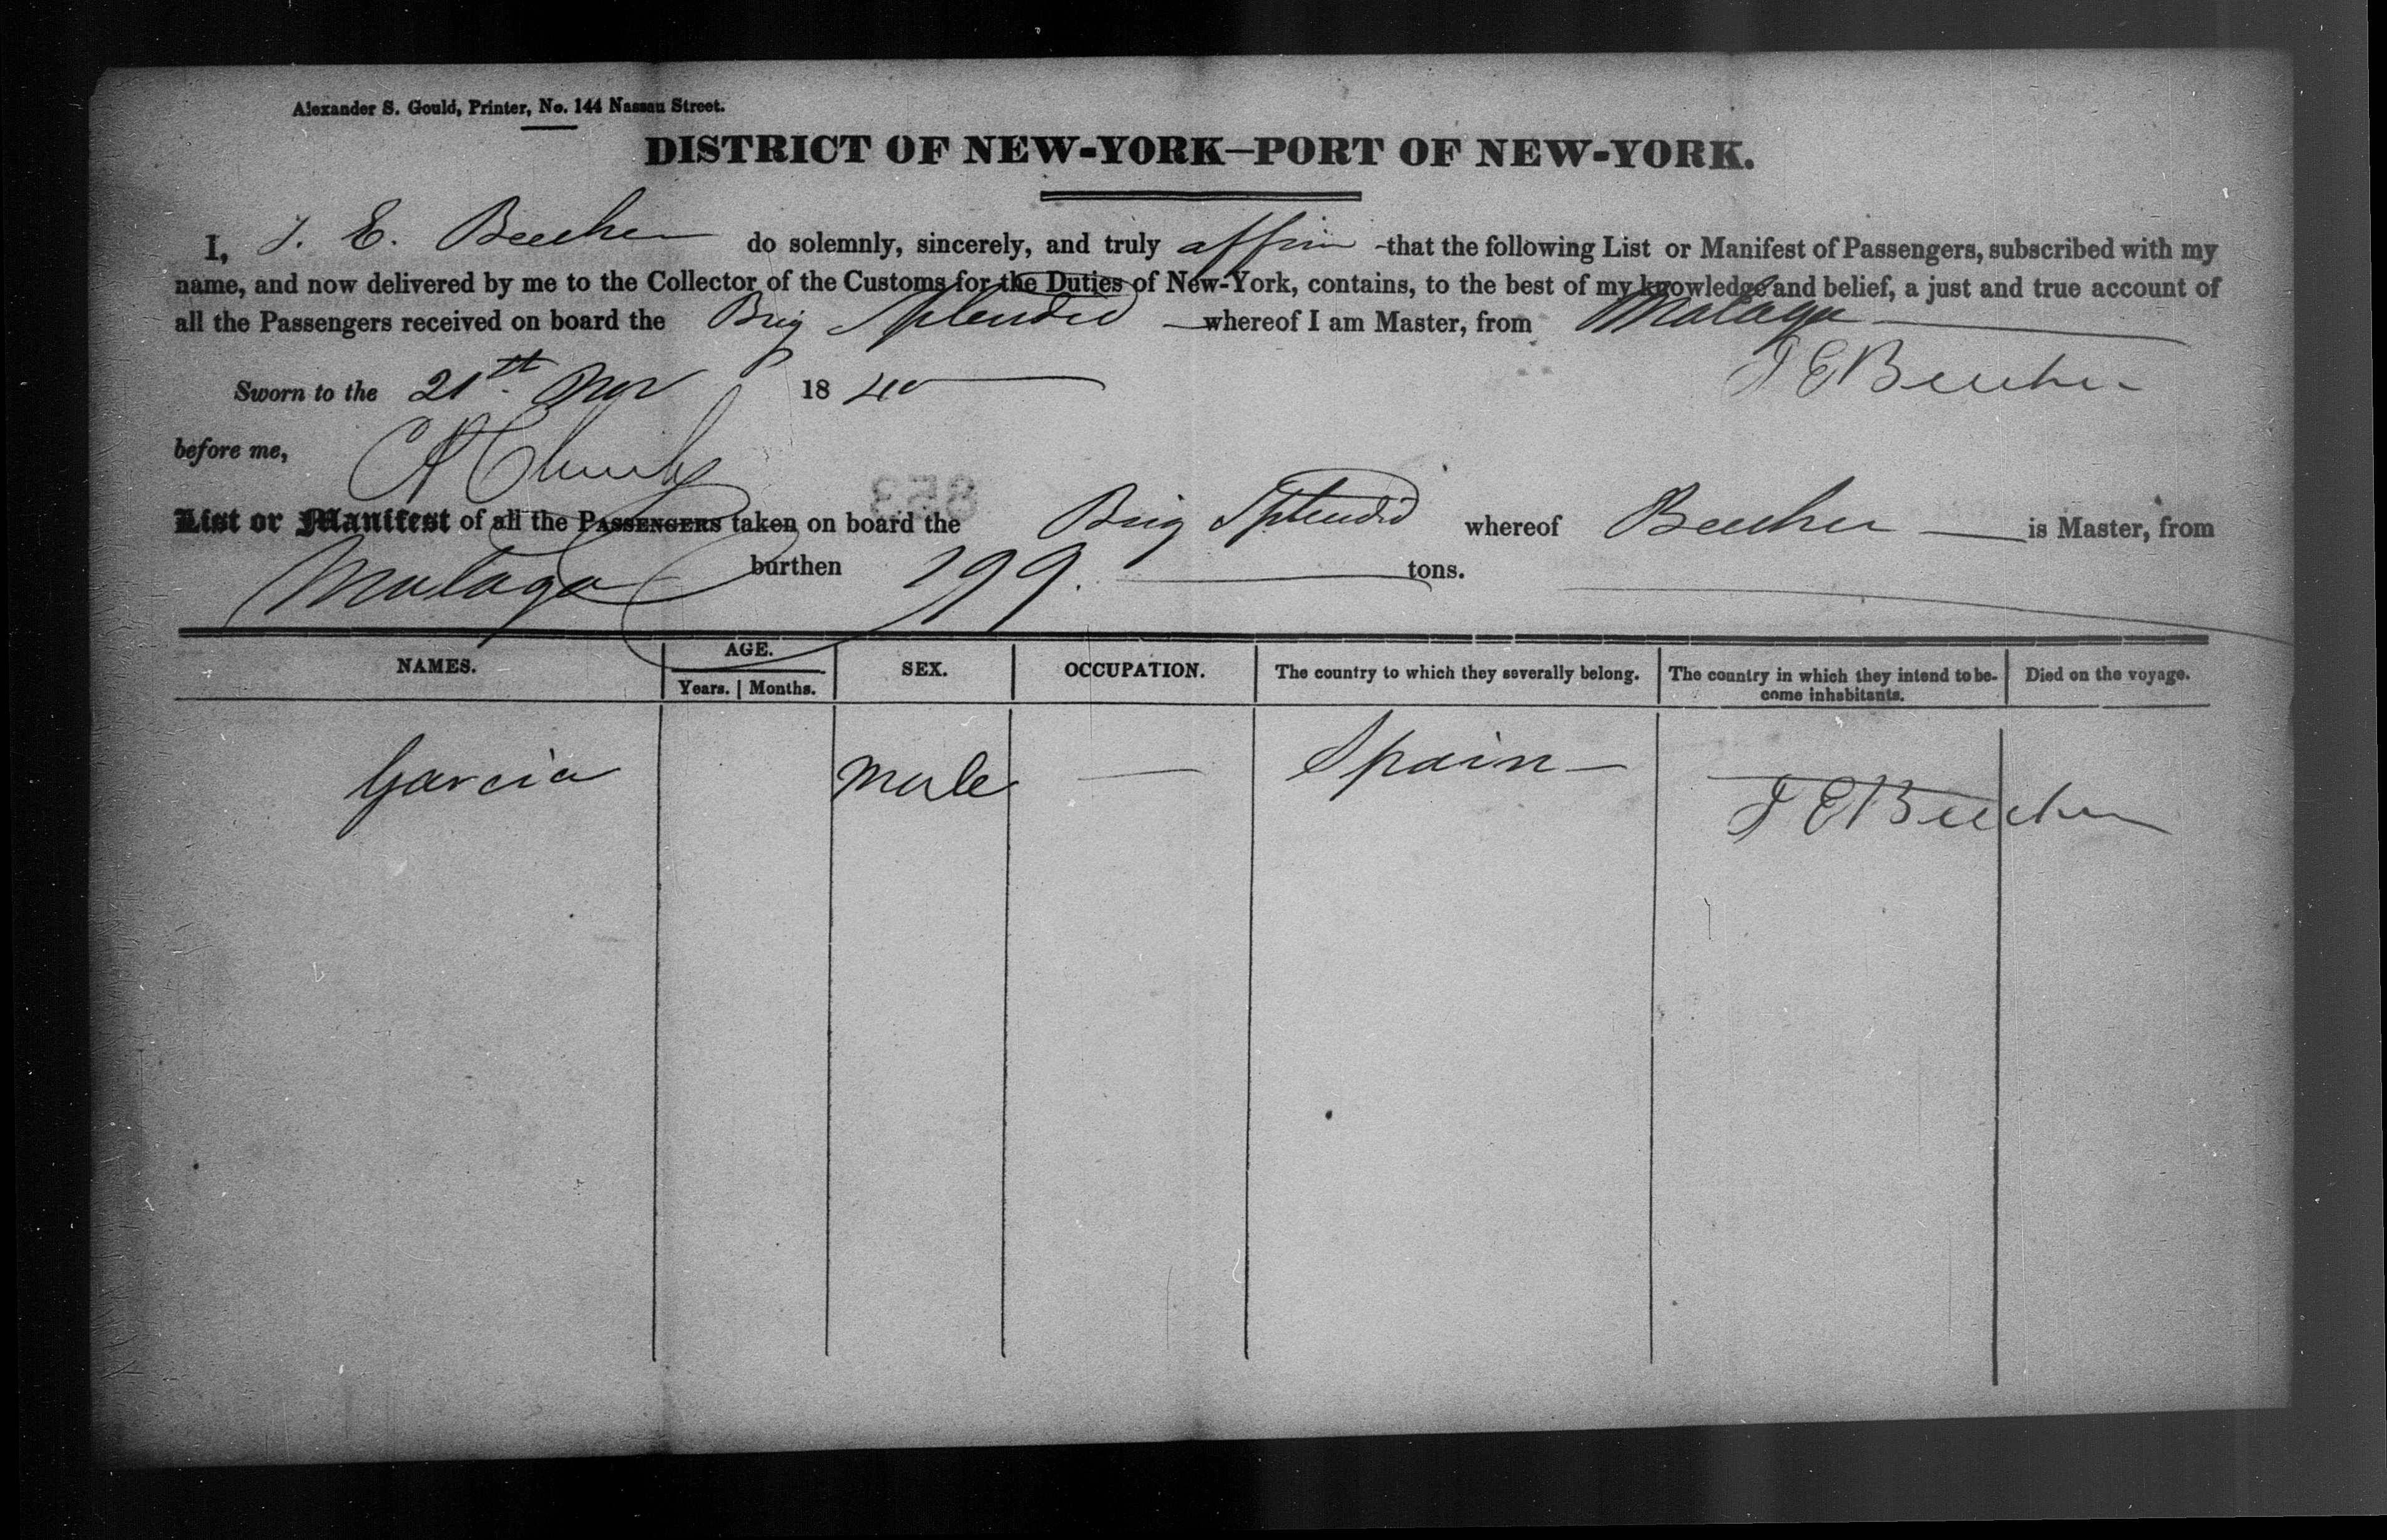 Alexander S. Gould, Printer, No. 144 Nassau Street.
DISTRICT OF NEW-YORK—PORT OF NEW-YORK.
I, J. E. Beecher do solemnly, sincerely, and truly affirm that the following List or Manifest of Passengers, subscribed with my
name, and now delivered by me to the Collector of the Customs for the Duties of New-York, contains, to the best of my knowledge and belief, a just and true account of
all the Passengers received on board the Brig Splendid whereof I am Master, from Malaga
Sworn to the 21st. Nov 1840 J E Beecher
before me,
853
List or Manifest of all the PASSENGERS taken on board the Brig Splendid whereof Beecher is Master, from
Malaga burthen 199. tons.
NAMES. AGE. Years. Months. SEX. OCCUPATION. The country to which they severally belong. The country in which they intend to become inhabitants. Died on the voyage.
Garcia male — Spain —
J E Beecher